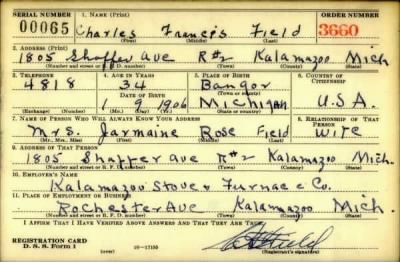 SERIAL NUMBER 1. NAME (Print) ORDER NUMBER
00065 Charles Francis Field 3660
(First) (Middle) (Last)
2. ADDRESS (Print)
1805 Shaffer Ave R#2 Kalamazoo Mich
(Number and street or R. F. D. number) (Town) (County) (State)
3. TELEPHONE 4. AGE IN YEARS 5. PLACE OF BIRTH 6. COUNTRY OF CITIZENSHIP
4818 34 Bangor
DATE OF BIRTH (Town or county)
1 9 1906 Michigan U.S.A.
(Exchange) (Number) (Mo.) (Day) (Yr.) (State or country)
7. NAME OF PERSON WHO WILL ALWAYS KNOW YOUR ADDRESS 8. RELATIONSHIP OF THAT PERSON
Mrs. Jarmaine Rose Field Wife
(Mr., Mrs., Miss) (First) (Middle) (Last)
9. ADDRESS OF THAT PERSON
1805 Shaffer Ave R#2 Kalamazoo Mich.
(Number and street or R. F. D. number) (Town) (County) (State)
10. EMPLOYER'S NAME
Kalamazoo Stove & Furnace Co.
11. PLACE OF EMPLOYMENT OR BUSINESS
Rochester Ave Kalamazoo Mich.
(Number and street or R. F. D. number) (Town) (County) (State)
I AFFIRM THAT I HAVE VERIFIED ABOVE ANSWERS AND THAT THEY ARE TRUE.
REGISTRATION CARD
D. S. S. Form 1 16—17105 (Registrant's signature)